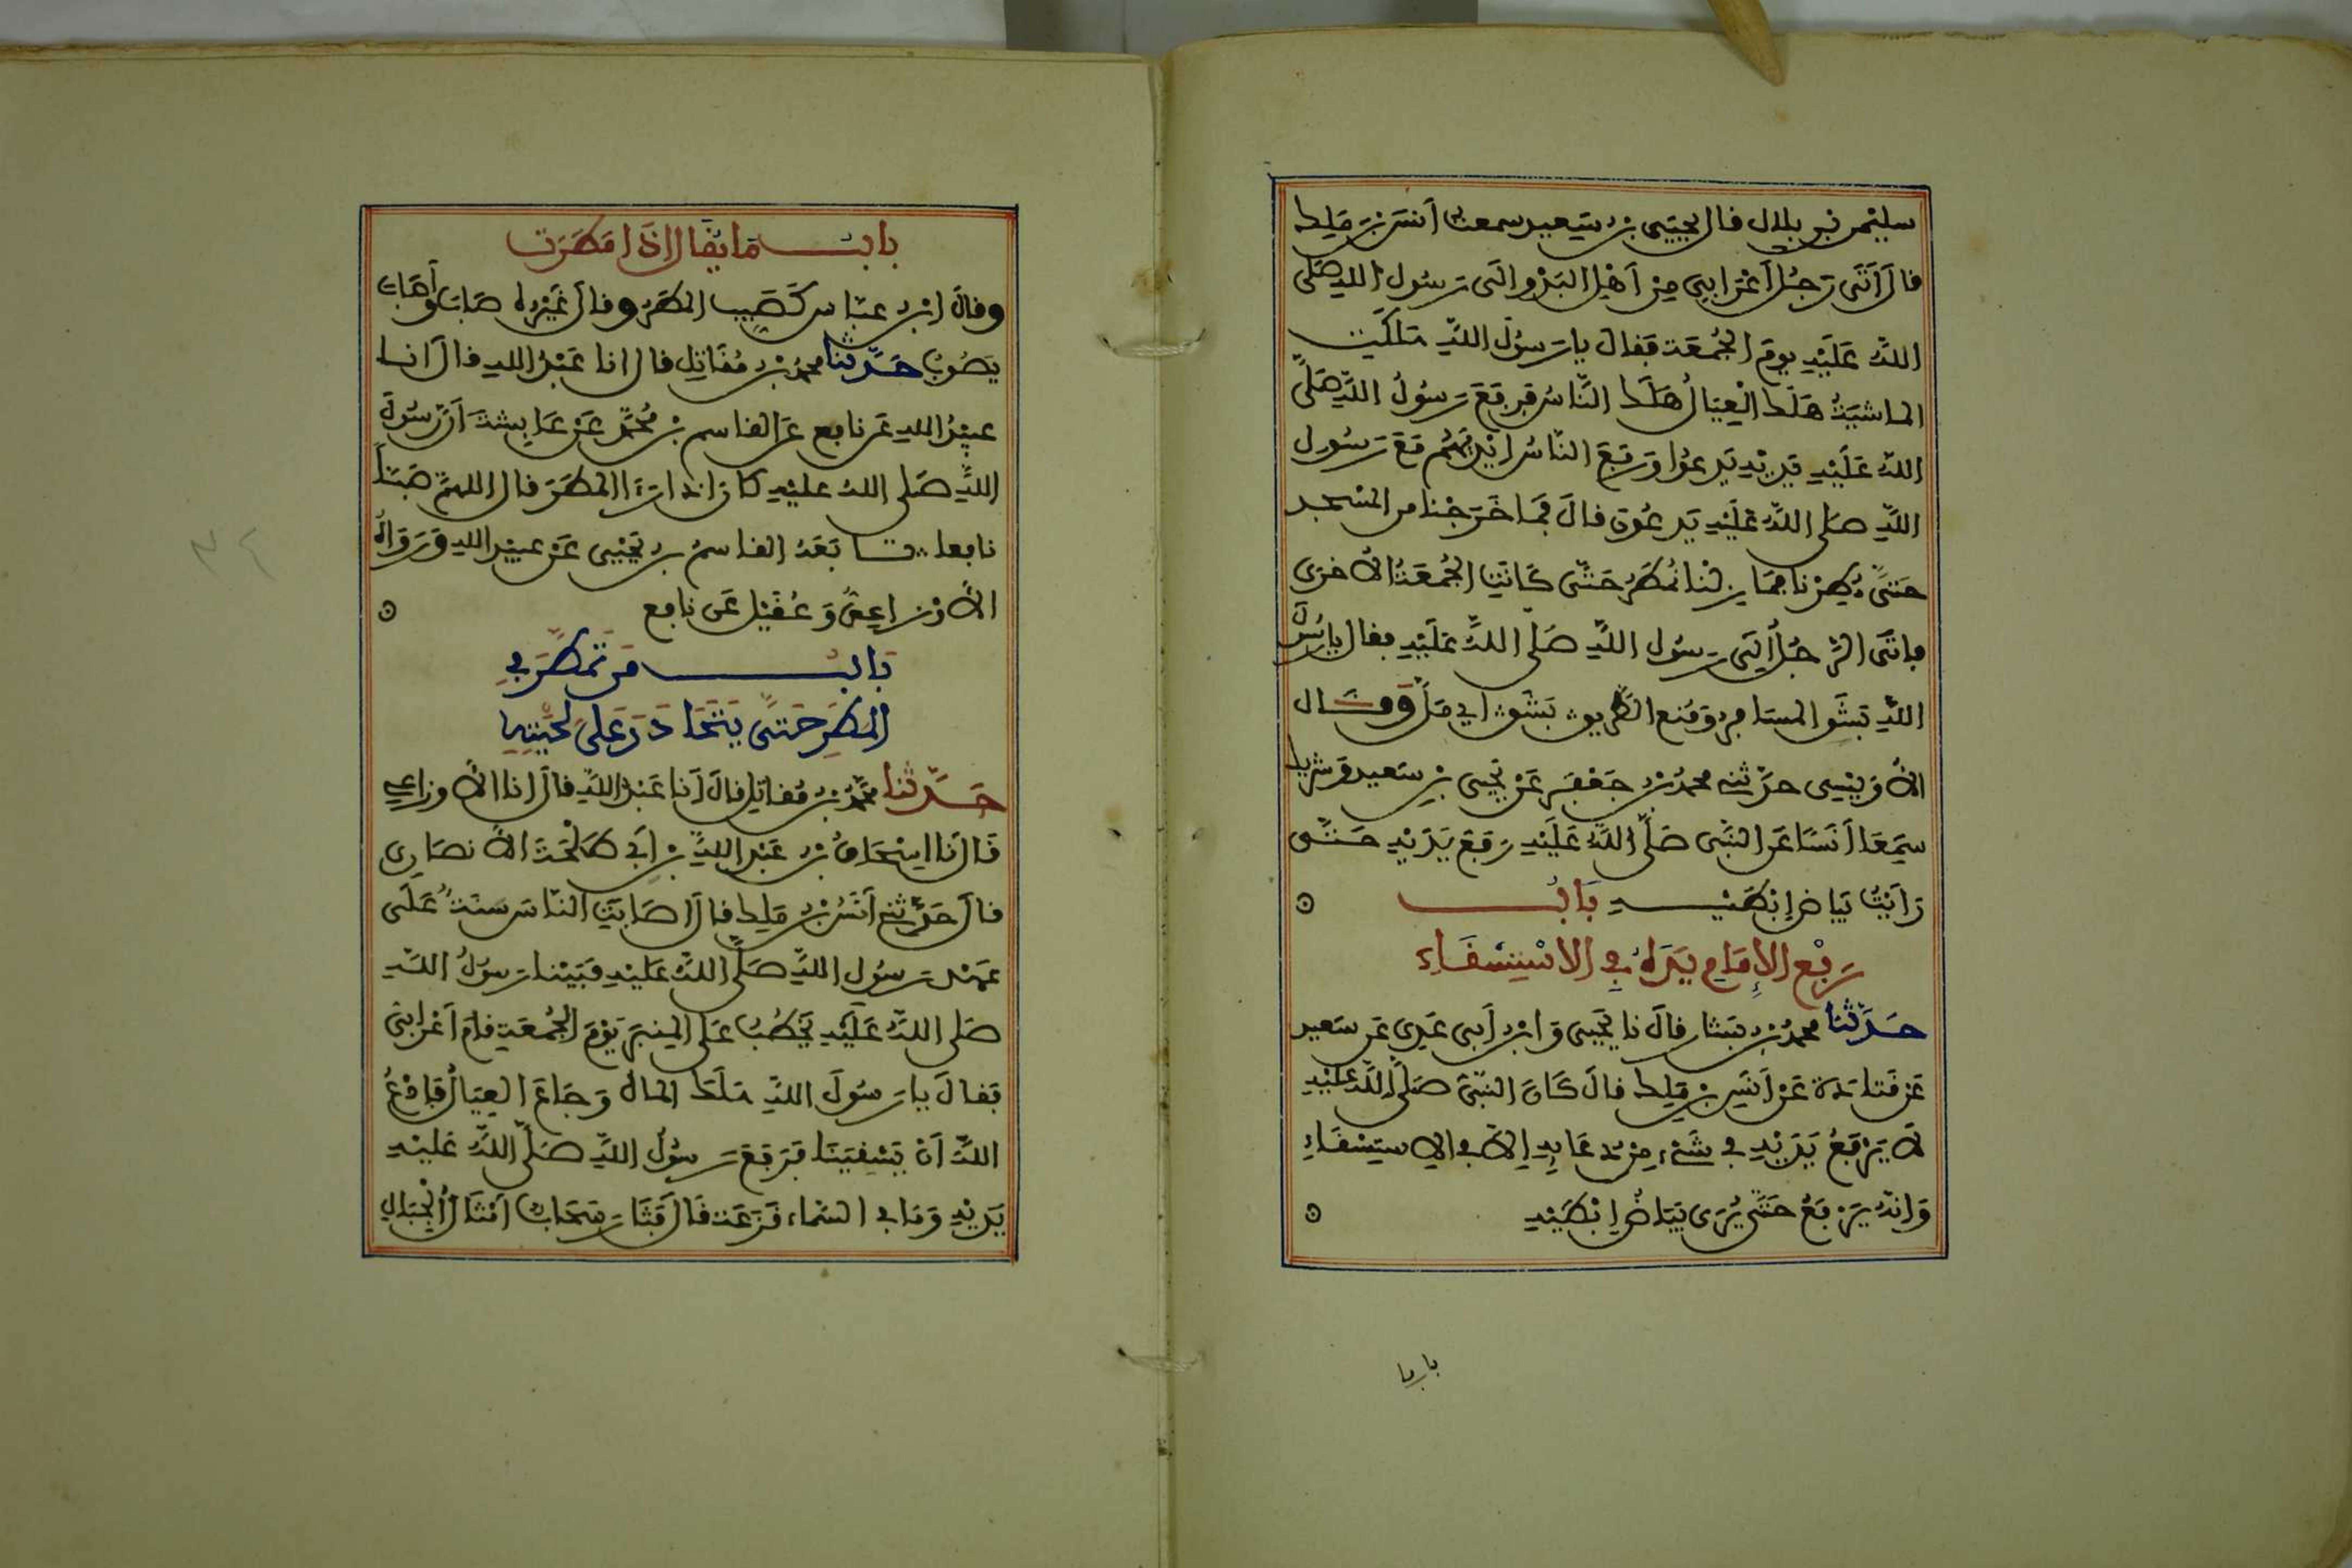 سليمن بن بلال قال يحيى بن سعيد سمعت أنس بن ملك
قال أتى رجل أعرابي من أهل البدو إلى رسول الله صلى
الله عليه يوم الجمعة فقال يا رسول الله هلكت
الماشية هلك العيال هلك الناس فرفع رسول الله صلى
الله عليه يديه يدعوا ورفع الناس أيديهم مع رسول
الله صلى الله عليه يدعون قال فما خرجنا من المسجد
حتى مطرنا فما زلنا نمطر حتى كانت الجمعة الأخرى
فأتى الرجل إلى رسول الله صلى الله عليه فقال يا رسول
الله بشق المسافر ومنع الطريق بشق اي مل وقال
الأويسي حدثني محمد بن جعفر عن يحيى بن سعيد وشريك
سمعا أنسا عن النبي صلى الله عليه رفع يديه حتى
رأيت بياض إبطيه باب
رفع الإمام يده في الاستسقاء
حدثنا محمد بن بشار قال نا يحيى وابن أبي عدي عن سعيد
عن قتادة عن أنس بن ملك قال كان النبي صلى الله عليه
لا يرفع يديه في شيء من دعائه إلا في الاستسقاء
وإنه يرفع حتى يرى بياض إبطيه
باب ما
باب ما يقال إذا أمطرت
وقال ابن عباس كصيب المطر وقال غيره صاب وأصاب
يصوب حدثنا محمد بن مقاتل قال انا عبد الله قال انا
عبيد الله عن نافع عن القاسم بن محمد عن عايشة أن رسول
الله صلى الله عليه كان إذا رءا المطر قال اللهم صيبا
نافعا تابعه القاسم بن يحيى عن عبيد الله ورواه
الأوزاعي وعقيل عن نافع
باب من تمطر في
المطر حتى يتحادر على لحيته
حدثنا محمد بن مقاتل قال أنا عبد الله قال انا الأوزاعي
قال نا إسحاق بن عبد الله بن أبي طلحة الأنصاري
قال حدثني أنس بن ملك قال أصابت الناس سنة على
عهد رسول الله صلى الله عليه فبينا رسول الله
صلى الله عليه يخطب على المنبر يوم الجمعة قام أعرابي
فقال يا رسول الله هلك المال وجاع العيال فادع
الله أن يسقينا فرفع رسول الله صلى الله عليه
يديه وما في السماء قزعة قال فثار سحاب أمثال الجبال